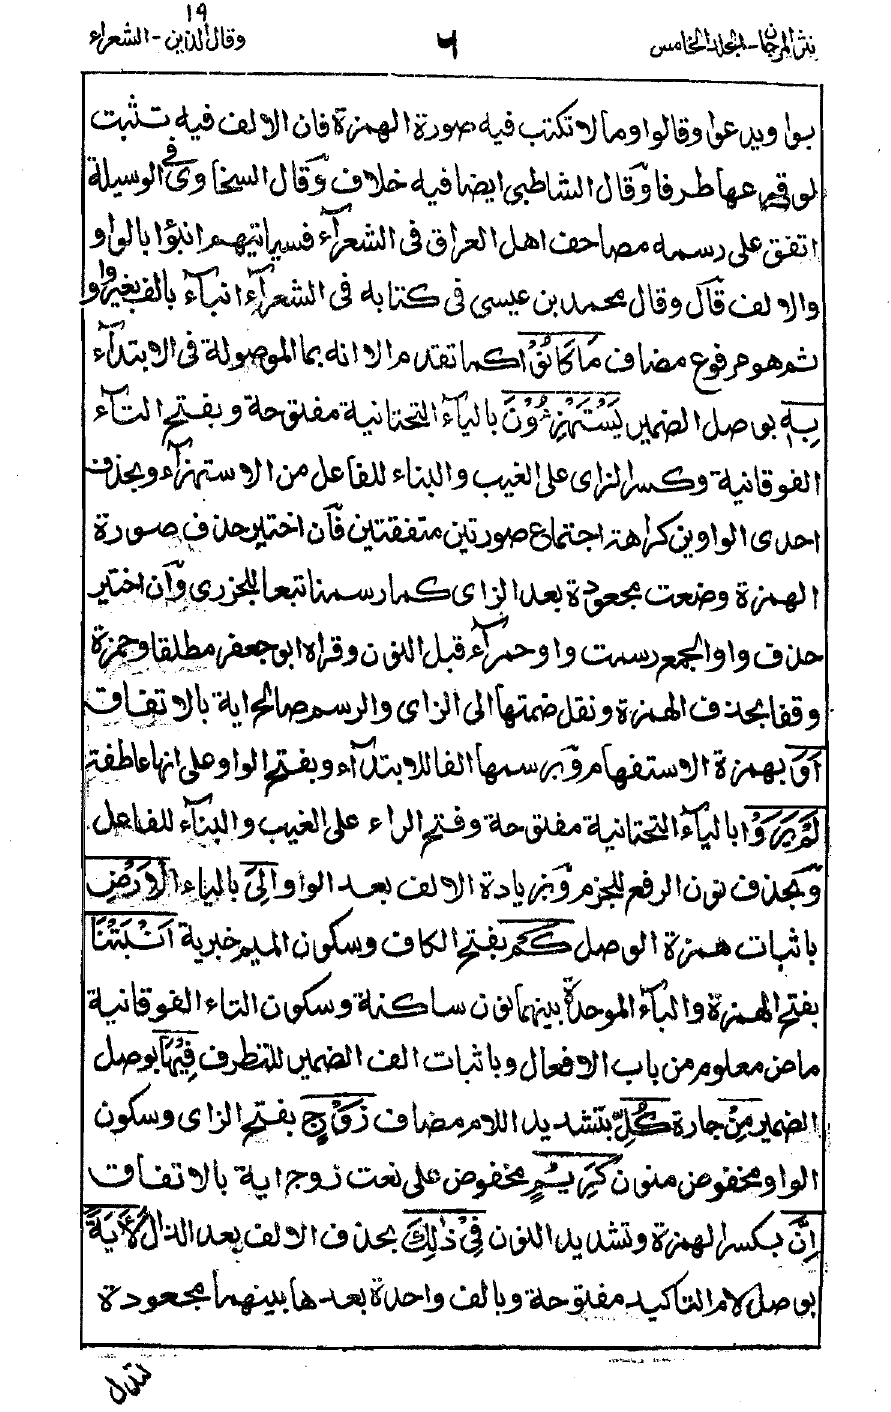 نثر المرجان - المجلد الخامس
٦
وقال الذين ١٩ - الشعراء
بوا ويدعوا وقالوا وما لا تكتب فيه صورة الهمزة فان الالف فيه تثبت
لوقوعها طرفا وقال الشاطبى ايضا فيه خلاف وقال السخاوى فى الوسيلة
اتفق على رسمه مصاحف اهل العراق فى الشعرآء فسياتيهم انبؤا بالواو
والالف قال وقال محمد بن عيسى فى كتابه فى الشعرآء انبآء بالف بغير واو
ثم هو مرفوع مضاف مَا كَانُوْا كما تقدم الا انه بما الموصولة فى الابتدآء
بِهٖ بوصل الضمير يَسْتَهْزِءُوْنَ باليآء التحتانية مفتوحة وبفتح التآء
الفوقانية وكسر الزاى على الغيب والبناء للفاعل من الاستهزآء وبحذف
احدى الواوين كراهة اجتماع صورتين متفقتين فان اختير حذف صورة
الهمزة وضعت مجعودة بعد الزاى كما رسمنا تبعا للجزرى وان اختير
حذف واو الجمع رسمت واو حمرآء قبل النون وقراه ابو جعفر مطلقا وحمزة
وقفا بحذف الهمزة ونقل ضمتها الى الزاى والرسم صالح اية بالاتفاق
اَوَ بهمزة الاستفهام وبرسمها الفا للابتدآء وبفتح الواو على انها عاطفة
لَمْ يَرَوْا باليآء التحتانية مفتوحة وفتح الراء على الغيب والبنآء للفاعل
وبحذف نون الرفع للجزم وبزيادة الالف بعد الواو اِلَى بالياء الْاَرْضِ
باثبات همزة الوصل كَمْ بفتح الكاف وسكون الميم خبرية اَنْۢبَتْنَا
بفتح الهمزة والبآء الموحدة بينهما نون ساكنة وسكون التاء الفوقانية
ماض معلوم من باب الافعال وباثبات الف الضمير للتطرف فِيْهَا بوصل
الضمير مِنْ جارة كُلِّ بتشديد اللام مضاف زَوْجٍ بفتح الزاى وسكون
الواو مخفوض منون كَرِيْمٍ مخفوض على نعت زوج اية بالاتفاق
اِنَّ بكسر الهمزة وتشديد النون فِىْ ذٰلِكَ بحذف الالف بعد الذال لَاٰيَةً
بوصل لام التاكيد مفتوحة وبالف واحدة بعدها بينهما مجعودة